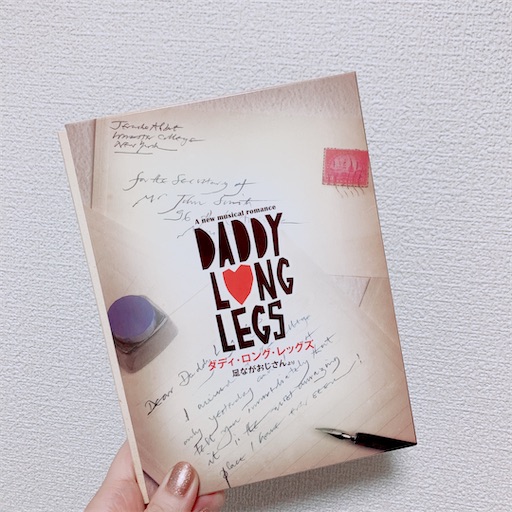 Jerusha Abbott
College
New York
for the Secretary of
Mr John Smith
A new musical romance
DADDY
LONG
LEGS
ダディ・ロング・レッグズ
足ながおじさんより
Dear Daddy
I
only yesterday that
Tell you immediately
it is the most amazing
place I have ever seen!